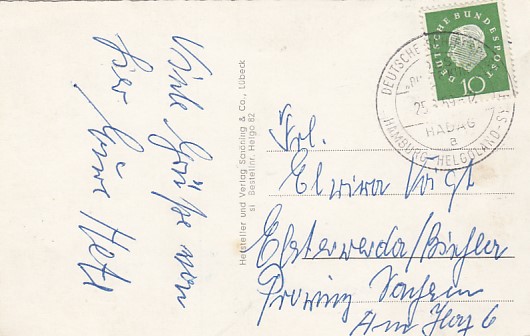 Viele Grüße von
hier
Hersteller und Verlag Schöning & Co., Lübeck
si Bestellnr. Helgo 62
DEUTSCHE BUNDESPOST
10
DEUTSCHE
HADAG
a
HAMBURG-HELGOLAND
Frl.
Elwira Voigt
Elsterwerda/Biehla
Provinz Sachsen
Am Haag 6